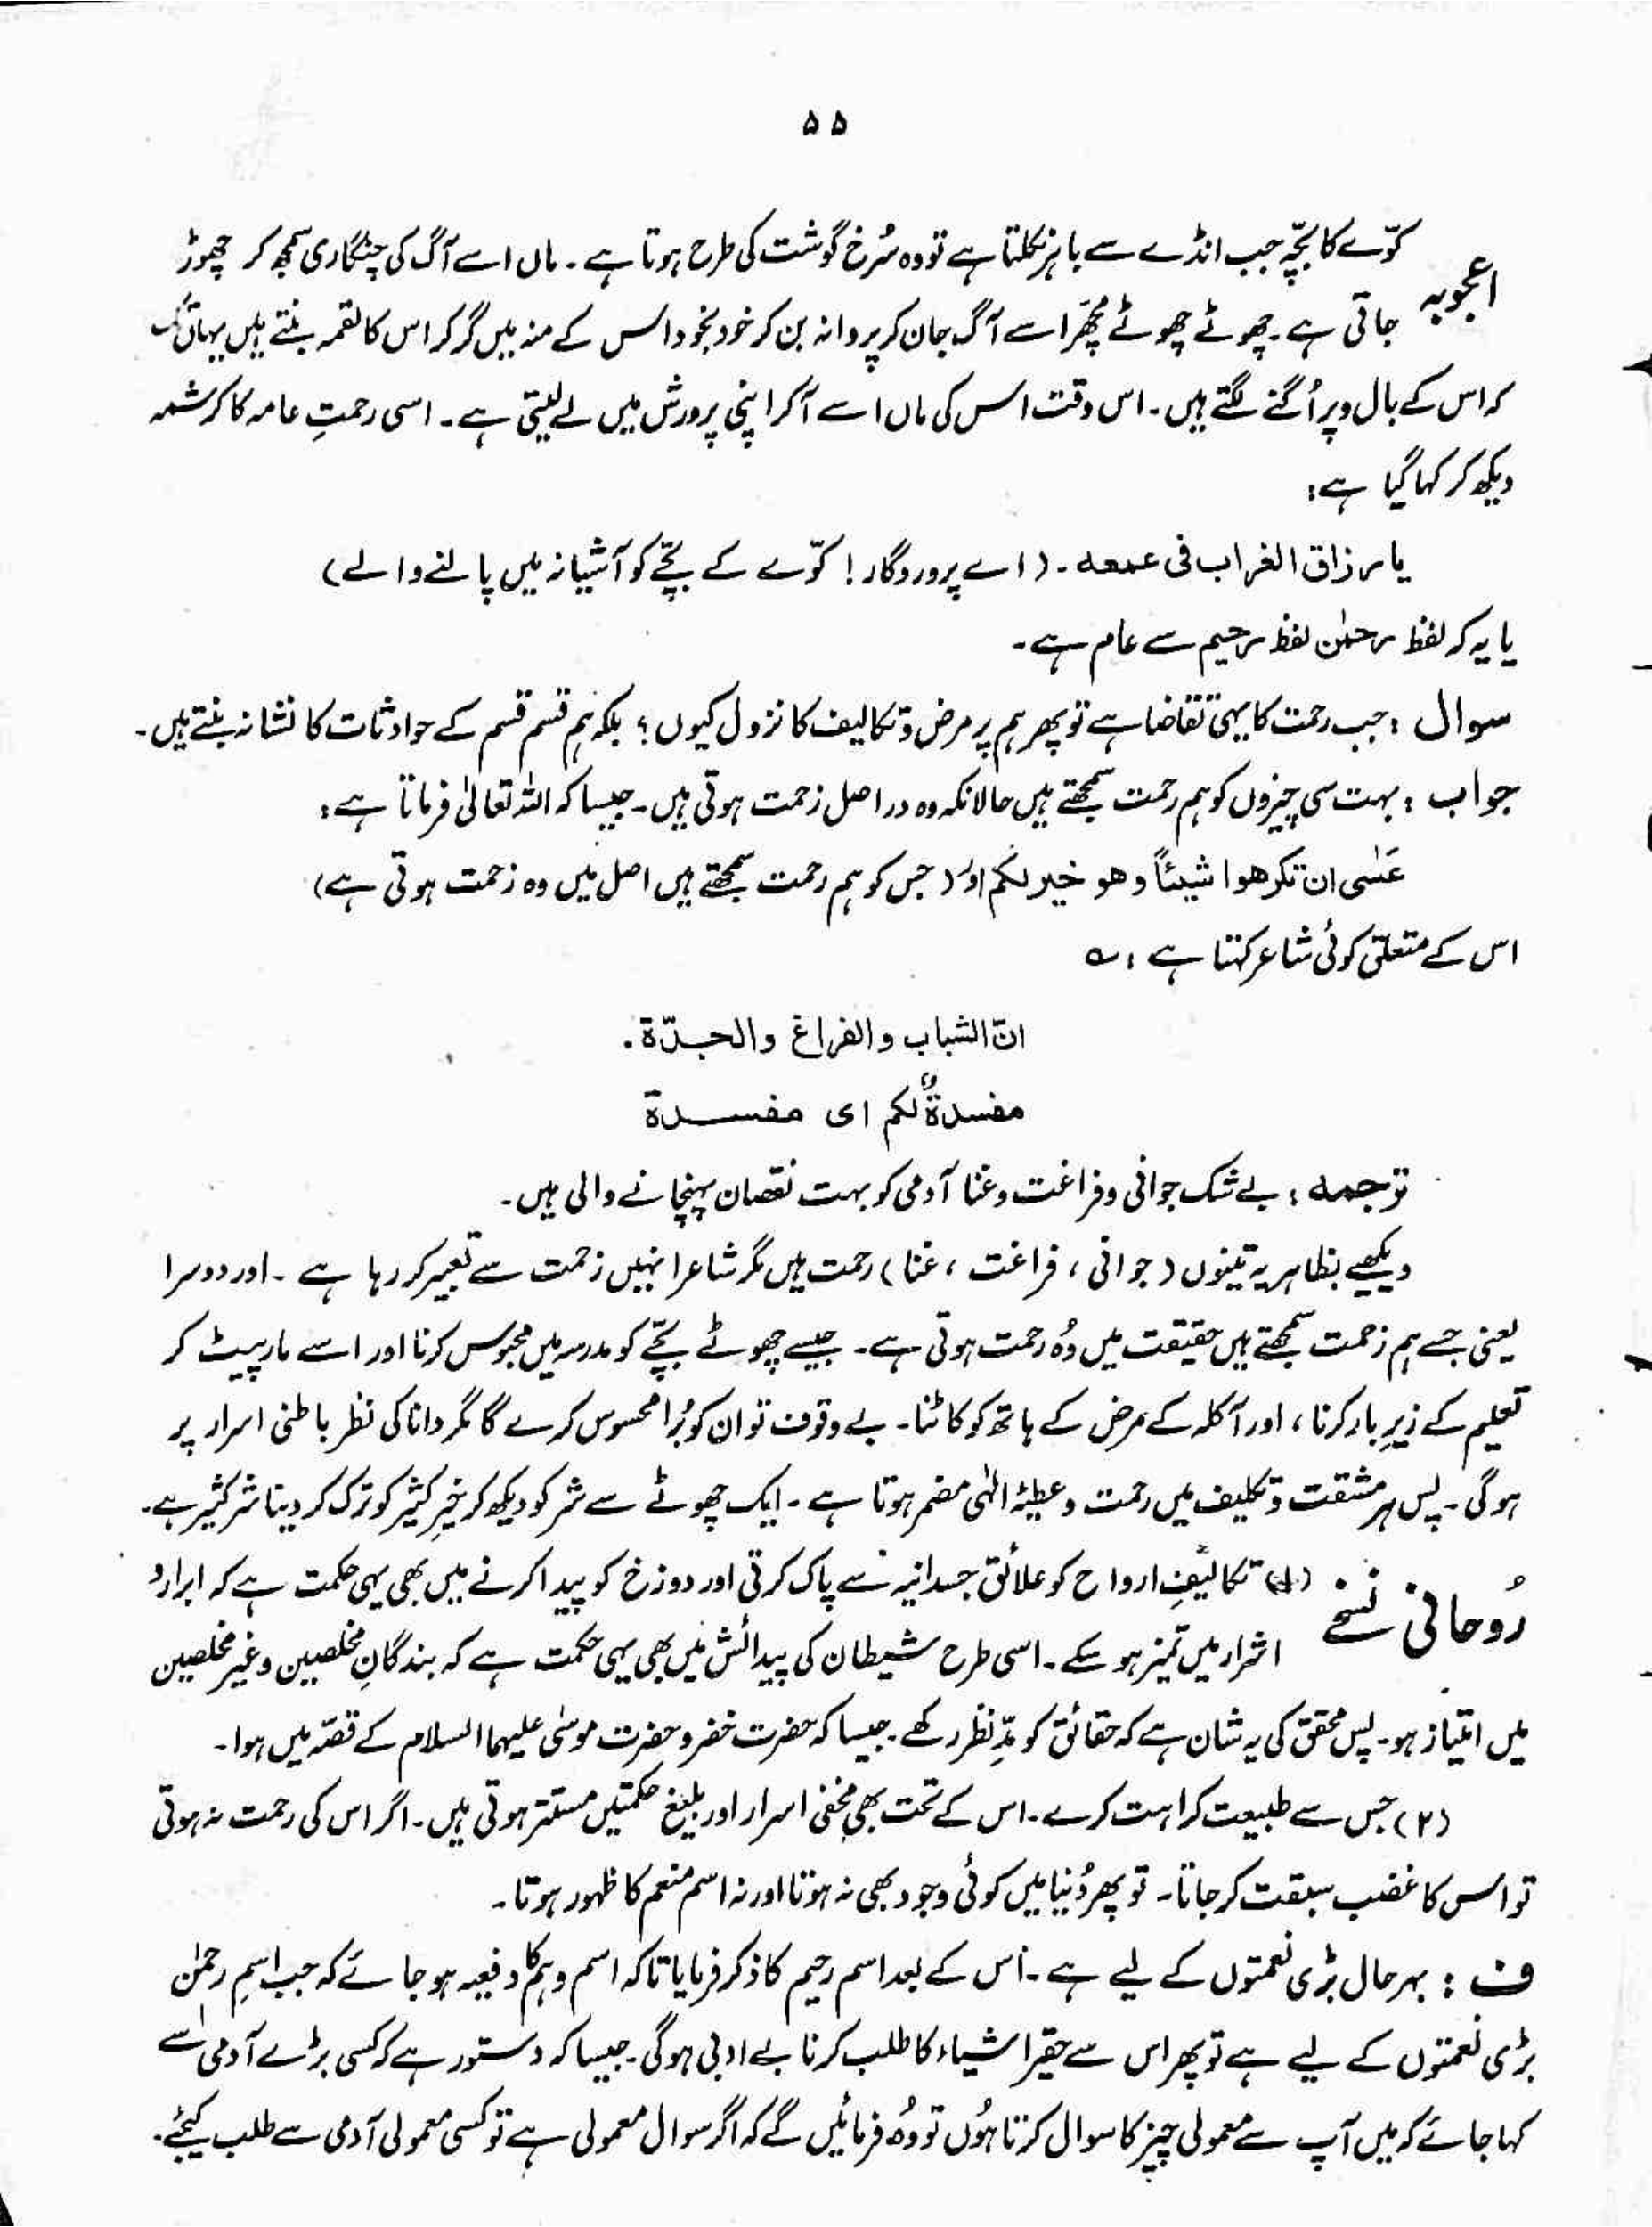 ۵۵
اعجوبہ
کوّے کا بچّہ جب انڈے سے باہر نکلتا ہے تو وہ سُرخ گوشت کی طرح ہوتا ہے۔ ماں اسے آگ کی چنگاری سمجھ کر چھوڑ
جاتی ہے۔ چھوٹے چھوٹے مچھّر اسے آگ جان کر پروانہ بن کر خود بخود اس کے منہ میں گر کر اس کا لقمہ بنتے ہیں یہاں تک
کہ اس کے بال و پر اُگنے لگتے ہیں۔ اس وقت اس کی ماں اسے آکر اپنی پرورش میں لے لیتی ہے۔ اسی رحمتِ عامہ کا کرشمہ
دیکھ کر کہا گیا ہے:
یا رزاق الغراب فی عمعه۔ (اے پروردگار! کوّے کے بچّے کو آشیانہ میں پالنے والے)
یا یہ کہ لفظ رحمٰن لفظ رحیم سے عام ہے۔
سوال : جب رحمت کا یہی تقاضا ہے تو پھر ہم پر مرض و تکالیف کا نزول کیوں؟ بلکہ ہم قسم قسم کے حوادثات کا نشانہ بنتے ہیں۔
جواب : بہت سی چیزوں کو ہم رحمت سمجھتے ہیں حالانکہ وہ دراصل زحمت ہوتی ہیں۔ جیسا کہ اللہ تعالیٰ فرماتا ہے:
عَسٰی ان تکرھوا شیئاً و ھو خیر لکم اوَ (جس کو ہم رحمت سمجھتے ہیں اصل میں وہ زحمت ہوتی ہے)
اس کے متعلق کوئی شاعر کہتا ہے : ؎
انّ الشباب و الفراغ والجدّة۔
مفسدةٌ لکم ای مفسدة
ترجمہ : بے شک جوانی و فراغت و غنا آدمی کو بہت نقصان پہنچانے والی ہیں۔
دیکھیے بظاہر یہ تینوں (جوانی ، فراغت ، غنا) رحمت ہیں مگر شاعر انہیں زحمت سے تعبیر کر رہا ہے ۔ اور دوسرا
یعنی جسے ہم زحمت سمجھتے ہیں حقیقت میں وُہ رحمت ہوتی ہے۔ جیسے چھوٹے بچّے کو مدرسہ میں محبوس کرنا اور اسے مار پیٹ کر
تعلیم کے زیرِ بار کرنا ، اور آکلہ کے مرض کے ہاتھ کو کاٹنا۔ بے وقوف تو ان کو بُرا محسوس کرے گا مگر دانا کی نظر باطنی اسرار پر
ہوگی۔ پس ہر مشقت و تکلیف میں رحمت و عطیۂ الٰہی مضمر ہوتا ہے۔ ایک چھوٹے سے شر کو دیکھ کر خیرِ کثیر کو ترک کر دینا شرِ کثیر ہے۔
رُوحانی نسخے
(۱) تکالیف ارواح کو علائق جسدانیہ سے پاک کرتی اور دوزخ کو پیدا کرنے میں بھی یہی حکمت ہے کہ ابرار و
اشرار میں تمیز ہو سکے۔ اسی طرح شیطان کی پیدائش میں بھی یہی حکمت ہے کہ بندگانِ مخلصین و غیر مخلصین
میں امتیاز ہو۔ پس محقق کی یہ شان ہے کہ حقائق کو مدِّ نظر رکھے۔ جیسا کہ حضرت خضر و حضرت موسٰی علیہما السلام کے قصّہ میں ہوا۔
(۲) جس سے طبیعت کراہت کرے۔ اس کے تحت بھی مخفی اسرار اور بلیغ حکمتیں مستتر ہوتی ہیں۔ اگر اس کی رحمت نہ ہوتی
تو اس کا غضب سبقت کر جاتا۔ تو پھر دُنیا میں کوئی وجود بھی نہ ہوتا اور نہ اسم منعم کا ظہور ہوتا۔
ف : بہر حال بڑی نعمتوں کے لیے ہے۔ اس کے بعد اسم رحیم کا ذکر فرمایا تاکہ اسم وہم کا دفعیہ ہو جائے کہ جب اسمِ رحمٰن
بڑی نعمتوں کے لیے ہے تو پھر اس سے حقیر اشیاء کا طلب کرنا بے ادبی ہوگی۔ جیسا کہ دستور ہے کہ کسی بڑے آدمی سے
کہا جائے کہ میں آپ سے معمولی چیز کا سوال کرتا ہُوں تو وُہ فرمائیں گے کہ اگر سوال معمولی ہے تو کسی معمولی آدمی سے طلب کیجئے۔